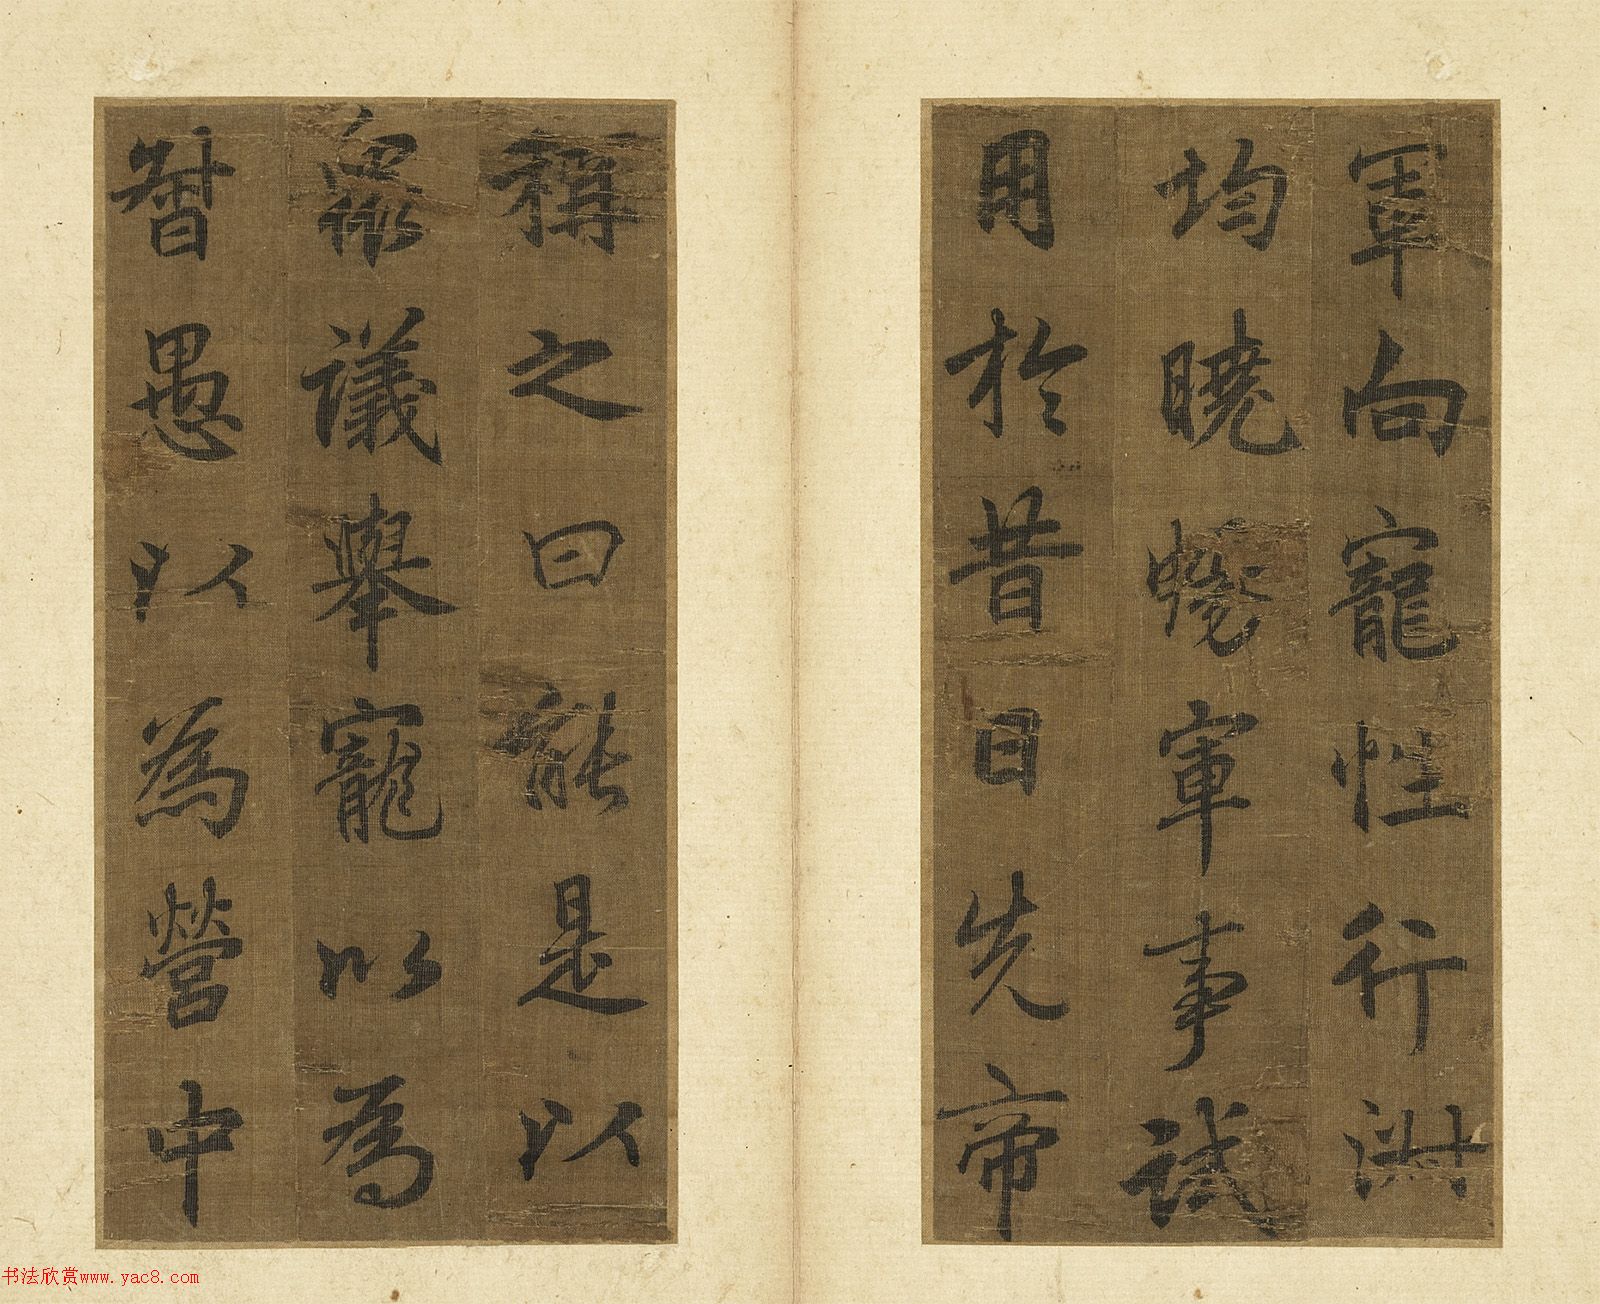 軍向寵性行淑
均曉暢軍事試
用於昔日先帝
稱之曰能是以
衆議舉寵以為
督愚以為營中
书法欣赏www.yac8.com